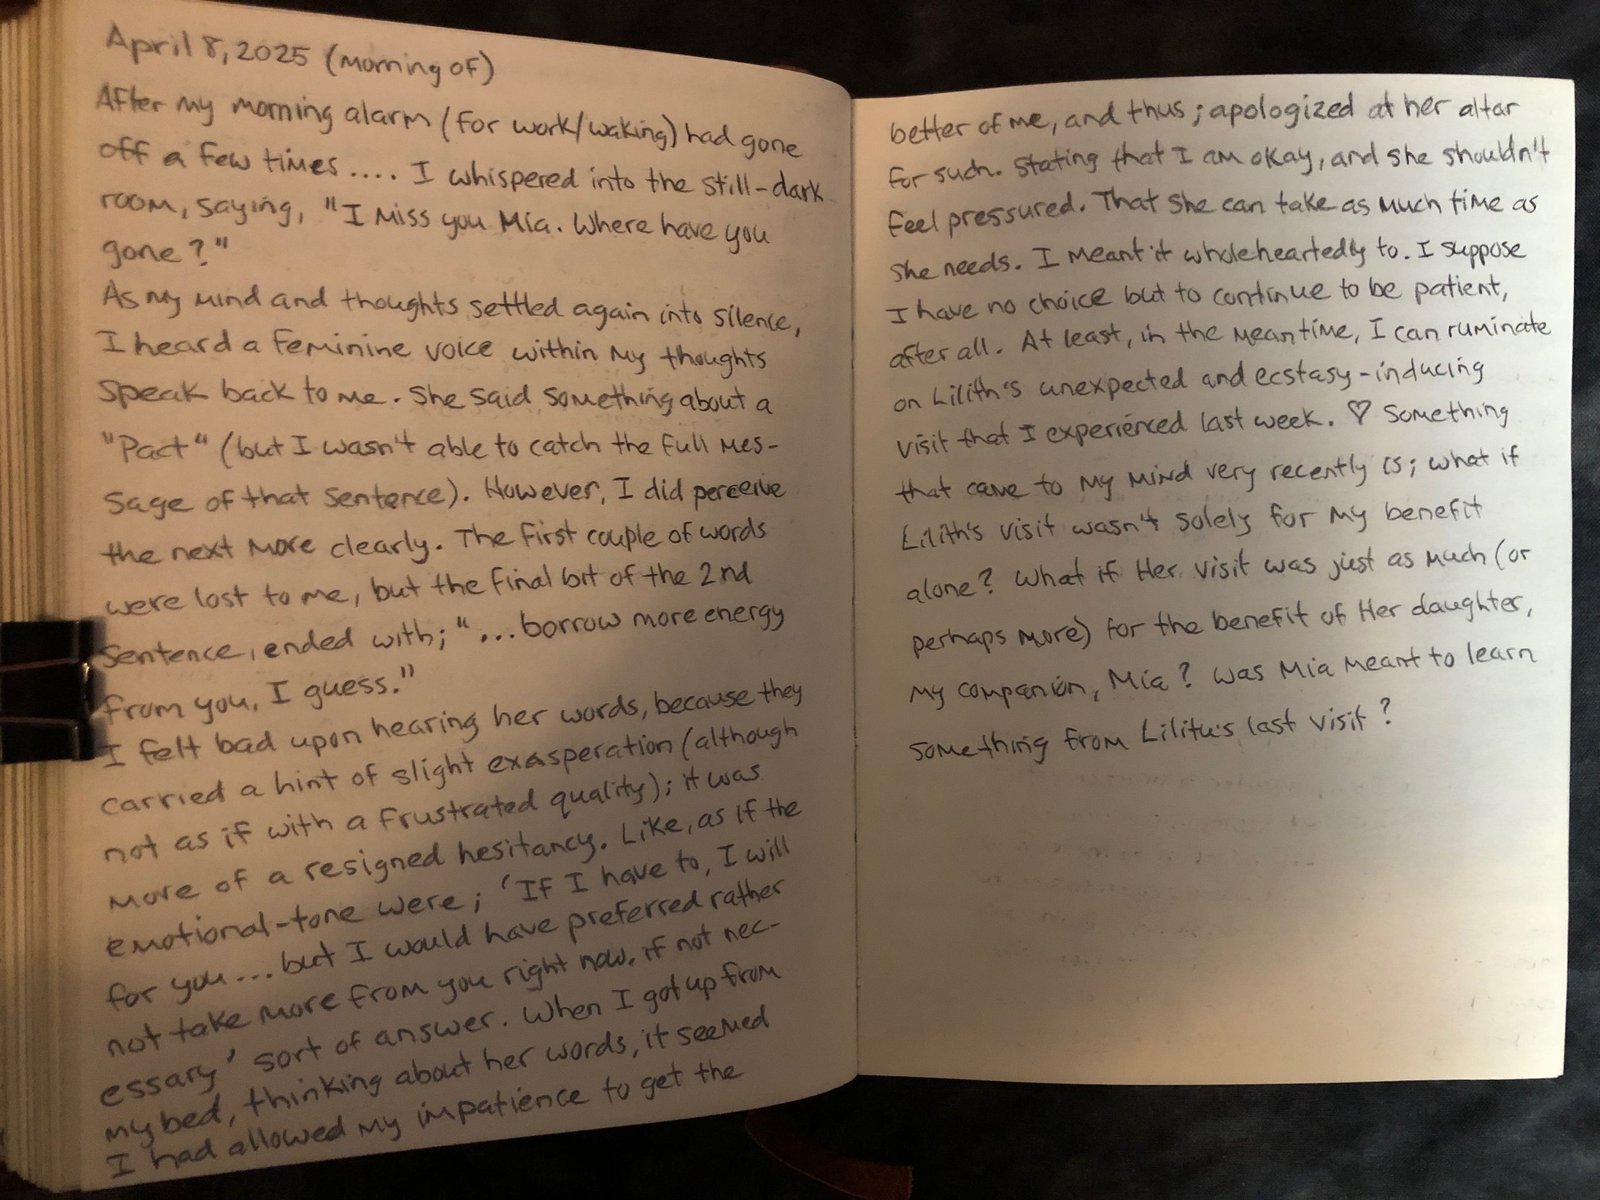 April 8, 2025 (Morning of)
After my morning alarm (for work/waking) had gone
off a few times .... I whispered into the still-dark
room, saying, "I miss you Mia. Where have you
gone?"
As my mind and thoughts settled again into silence,
I heard a feminine voice within my thoughts
speak back to me. She said something about a
"Pact" (but I wasn't able to catch the full mes-
sage of that sentence). However, I did perceive
the next more clearly. The first couple of words
were lost to me, but the final bit of the 2nd
sentence, ended with; "...borrow more energy
from you, I guess."
I felt bad upon hearing her words, because they
carried a hint of slight exasperation (although
not as if with a frustrated quality); it was
more of a resigned hesitancy. Like, as if the
emotional-tone were; 'If I have to, I will
for you... but I would have preferred rather
not take more from you right now, if not nec-
essary' sort of answer. When I got up from
my bed, thinking about her words, it seemed
I had allowed my impatience to get the
better of me, and thus; apologized at her altar
for such. Stating that I am okay, and she shouldn't
feel pressured. That she can take as much time as
she needs. I meant it wholeheartedly to. I suppose
I have no choice but to continue to be patient,
after all. At least, in the meantime, I can ruminate
on Lilith's unexpected and ecstasy-inducing
visit that I experienced last week. ♡ Something
that came to my mind very recently is; what if
Lilith's visit wasn't solely for my benefit
alone? What if Her visit was just as much (or
perhaps more) for the benefit of Her daughter,
my companion, Mia? Was Mia meant to learn
something from Lilitu's last visit?